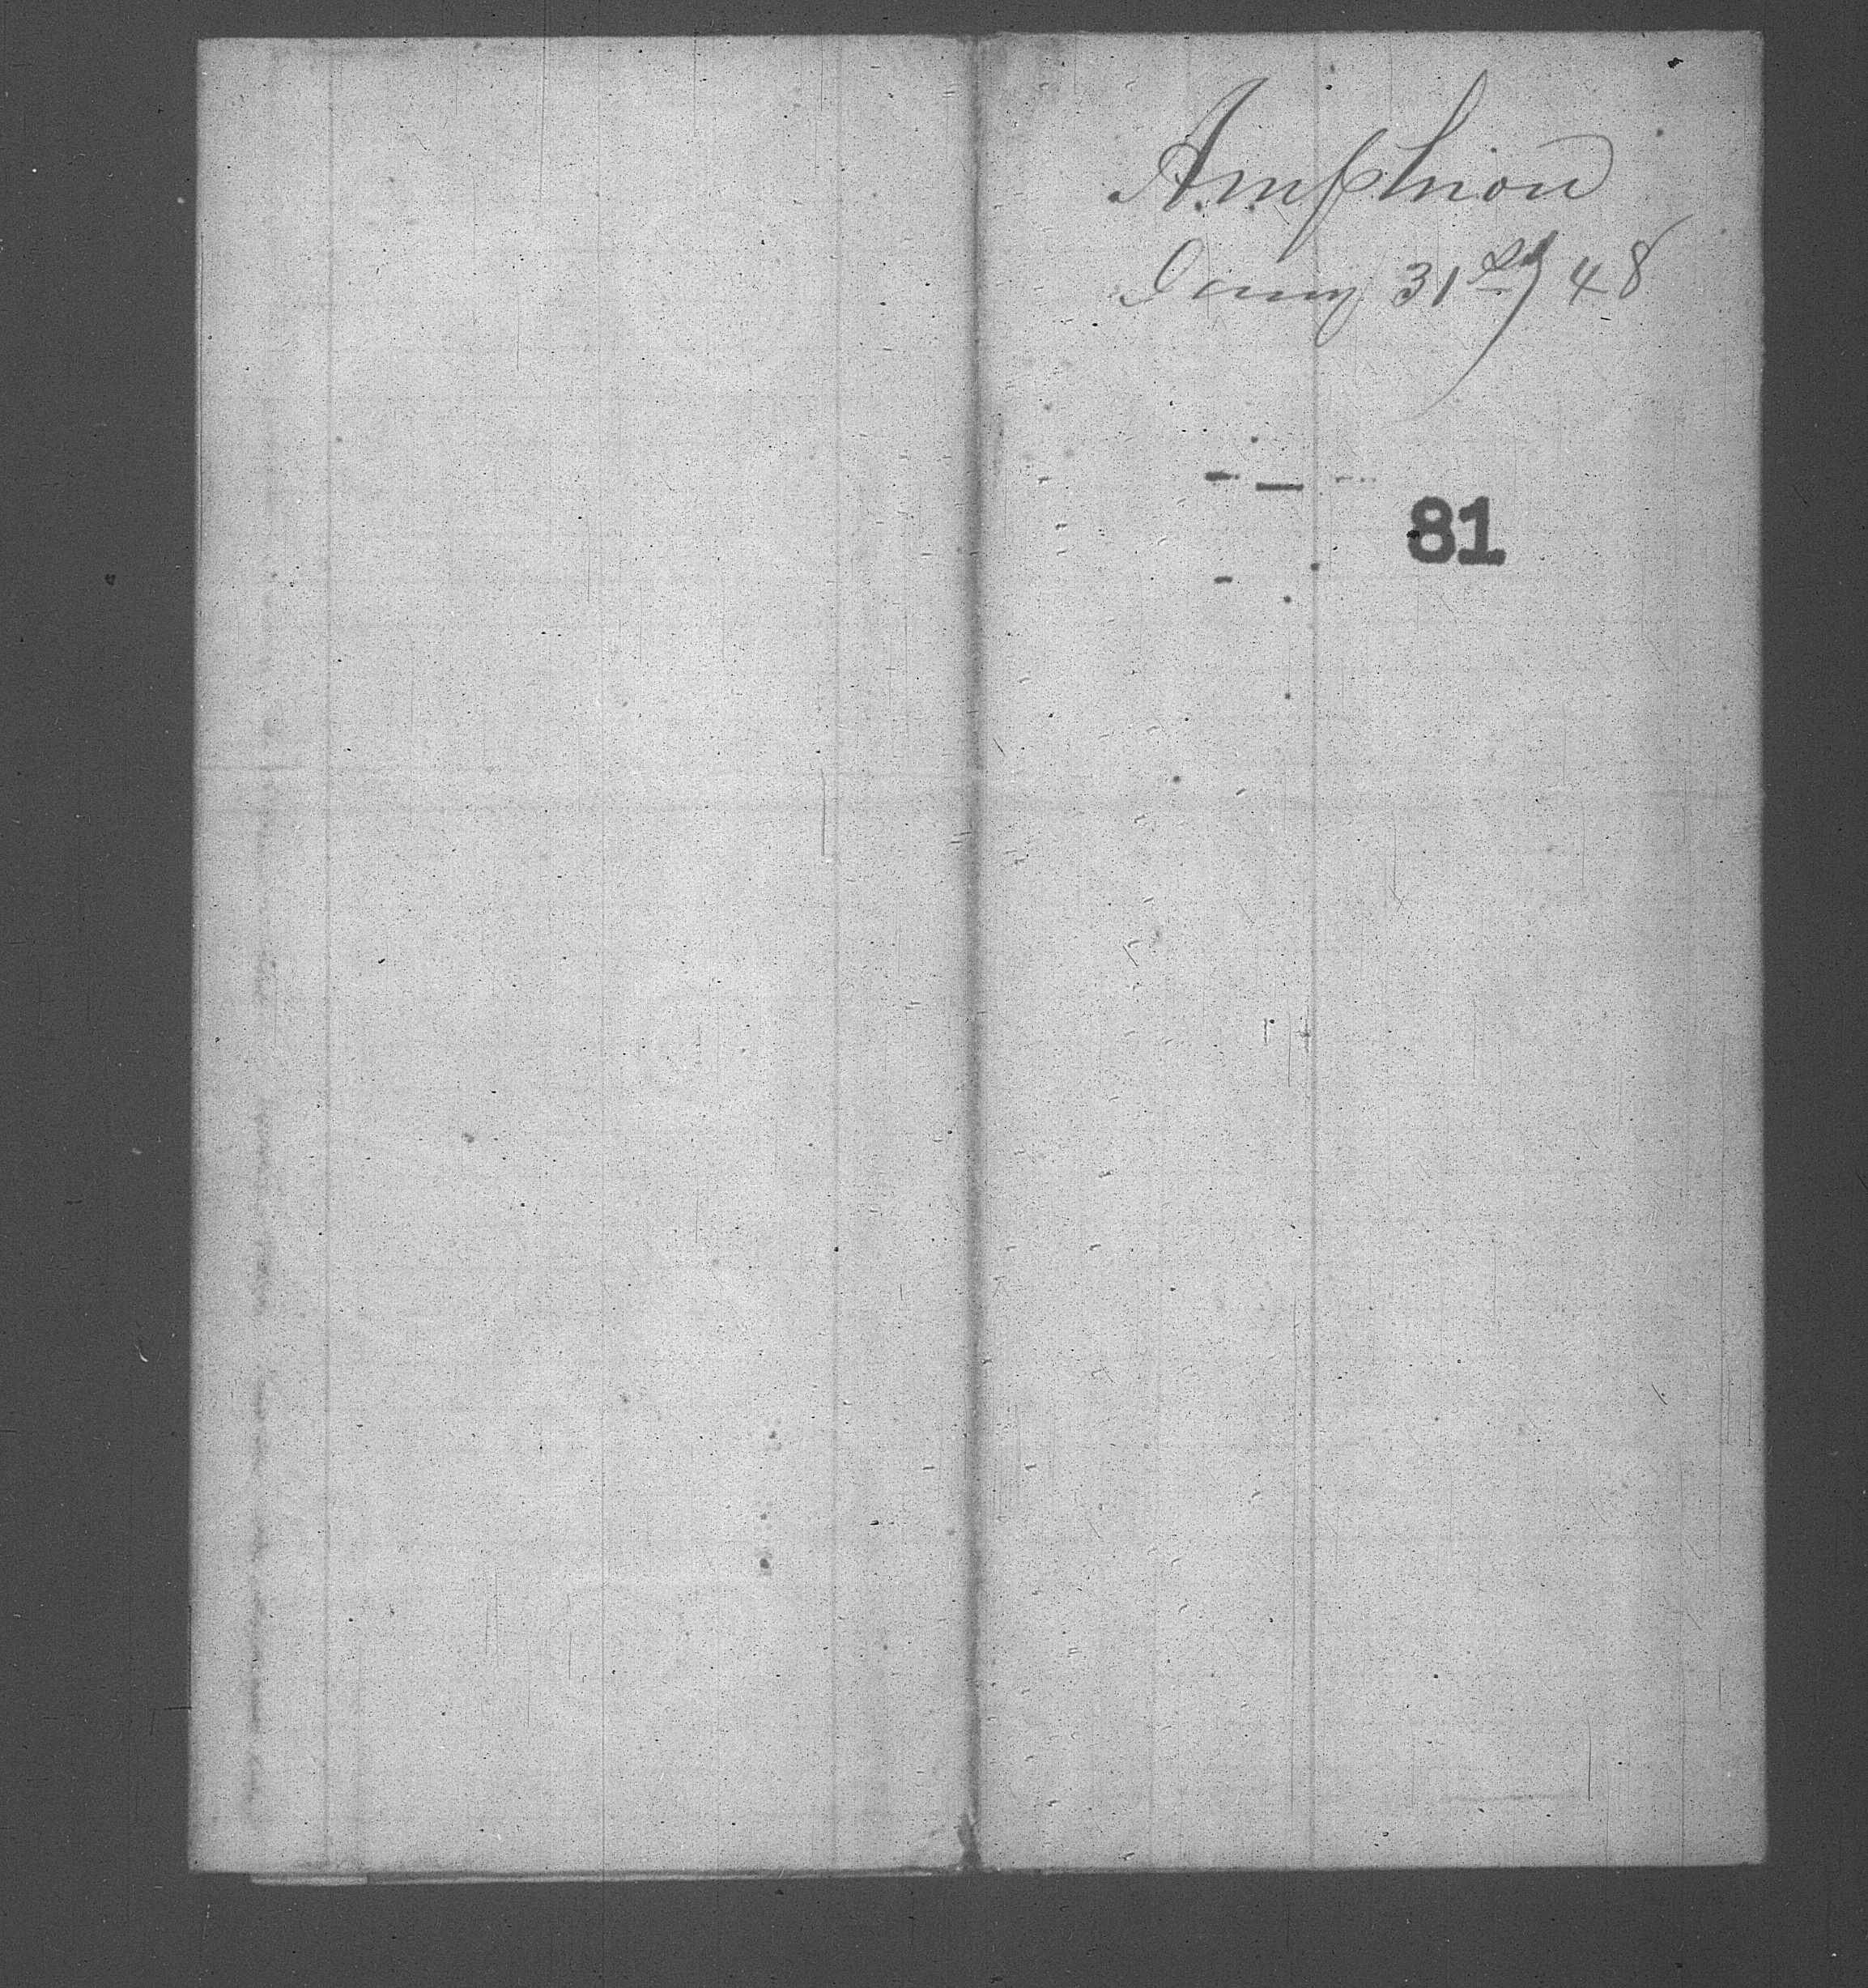 Amphion
Jany 31st/48
81